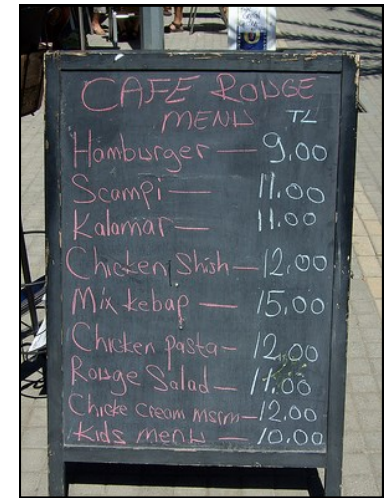 CAFE ROUGE
MENU TL
Hamburger — 9.00
Scampi — 11.00
Kalamar — 11.00
Chicken Shish — 12.00
Mix kebap — 15.00
Chicken pasta — 12.00
Rouge Salad — 11.00
Chicke cream msrm — 12.00
Kids menu — 10.00